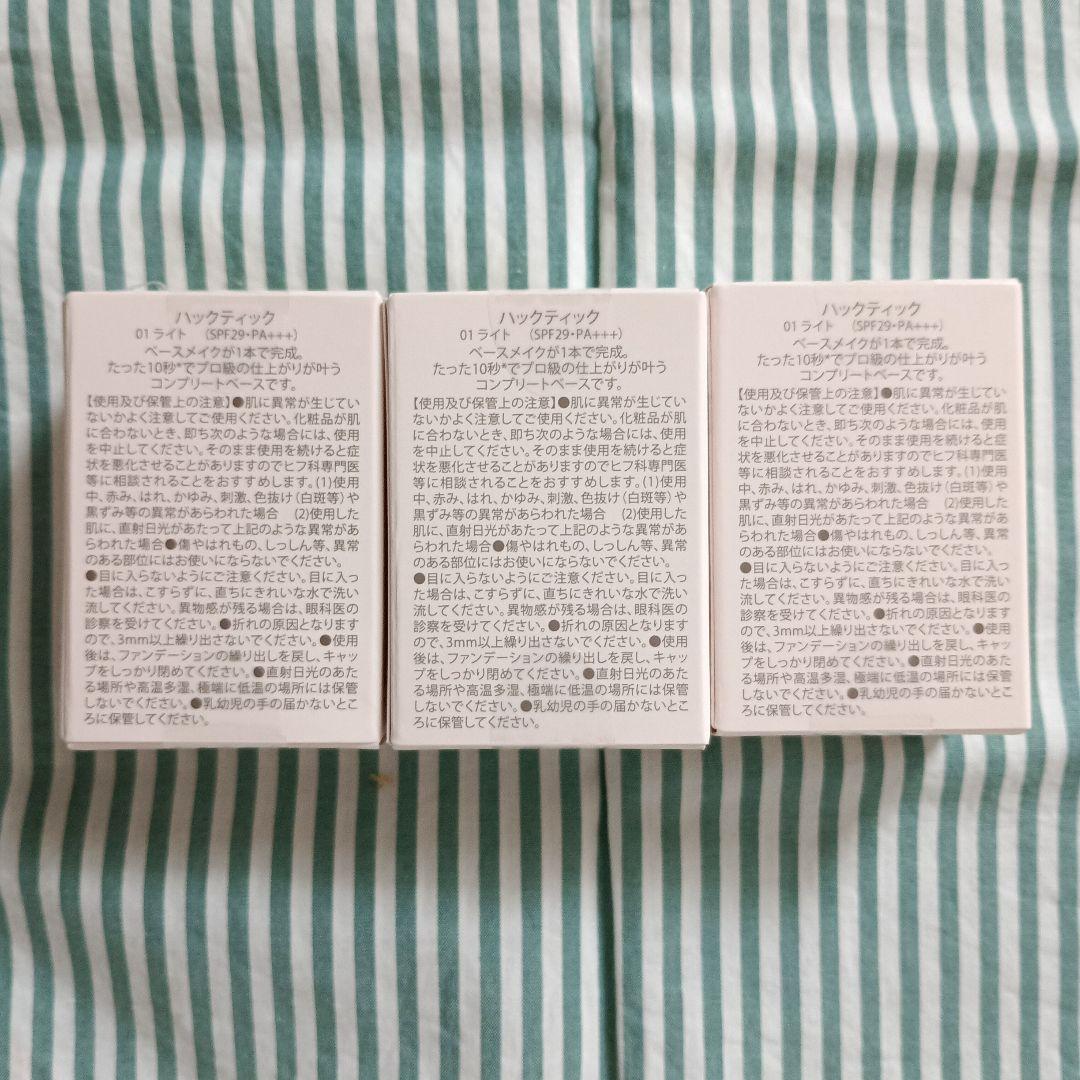 ハックティック
01 ライト （SPF29・PA+++）
ベースメイクが1本で完成。
たった10秒*でプロ級の仕上がりが叶う
コンプリートベースです。
【使用及び保管上の注意】●肌に異常が生じてい
ないかよく注意してご使用ください。化粧品が肌
に合わないとき、即ち次のような場合には、使用
を中止してください。そのまま使用を続けると症
状を悪化させることがありますのでヒフ科専門医
等に相談されることをおすすめします。(1)使用
中、赤み、はれ、かゆみ、刺激、色抜け（白斑等）や
黒ずみ等の異常があらわれた場合 (2)使用した
肌に、直射日光があたって上記のような異常があ
らわれた場合●傷やはれもの、しっしん等、異常
のある部位にはお使いにならないでください。
●目に入らないようにご注意ください。目に入っ
た場合は、こすらずに、直ちにきれいな水で洗い
流してください。異物感が残る場合は、眼科医の
診察を受けてください。●折れの原因となります
ので、3mm以上繰り出さないでください。●使用
後は、ファンデーションの繰り出しを戻し、キャッ
プをしっかり閉めてください。●直射日光のあた
る場所や高温多湿、極端に低温の場所には保管
しないでください。●乳幼児の手の届かないとこ
ろに保管してください。
ハックティック
01 ライト （SPF29・PA+++）
ベースメイクが1本で完成。
たった10秒*でプロ級の仕上がりが叶う
コンプリートベースです。
【使用及び保管上の注意】●肌に異常が生じてい
ないかよく注意してご使用ください。化粧品が肌
に合わないとき、即ち次のような場合には、使用
を中止してください。そのまま使用を続けると症
状を悪化させることがありますのでヒフ科専門医
等に相談されることをおすすめします。(1)使用
中、赤み、はれ、かゆみ、刺激、色抜け（白斑等）や
黒ずみ等の異常があらわれた場合 (2)使用した
肌に、直射日光があたって上記のような異常があ
らわれた場合●傷やはれもの、しっしん等、異常
のある部位にはお使いにならないでください。
●目に入らないようにご注意ください。目に入っ
た場合は、こすらずに、直ちにきれいな水で洗い
流してください。異物感が残る場合は、眼科医の
診察を受けてください。●折れの原因となります
ので、3mm以上繰り出さないでください。●使用
後は、ファンデーションの繰り出しを戻し、キャッ
プをしっかり閉めてください。●直射日光のあた
る場所や高温多湿、極端に低温の場所には保管
しないでください。●乳幼児の手の届かないとこ
ろに保管してください。
ハックティック
01 ライト （SPF29・PA+++）
ベースメイクが1本で完成。
たった10秒*でプロ級の仕上がりが叶う
コンプリートベースです。
【使用及び保管上の注意】●肌に異常が生じてい
ないかよく注意してご使用ください。化粧品が肌
に合わないとき、即ち次のような場合には、使用
を中止してください。そのまま使用を続けると症
状を悪化させることがありますのでヒフ科専門医
等に相談されることをおすすめします。(1)使用
中、赤み、はれ、かゆみ、刺激、色抜け（白斑等）や
黒ずみ等の異常があらわれた場合 (2)使用した
肌に、直射日光があたって上記のような異常があ
らわれた場合●傷やはれもの、しっしん等、異常
のある部位にはお使いにならないでください。
●目に入らないようにご注意ください。目に入っ
た場合は、こすらずに、直ちにきれいな水で洗い
流してください。異物感が残る場合は、眼科医の
診察を受けてください。●折れの原因となります
ので、3mm以上繰り出さないでください。●使用
後は、ファンデーションの繰り出しを戻し、キャッ
プをしっかり閉めてください。●直射日光のあた
る場所や高温多湿、極端に低温の場所には保管
しないでください。●乳幼児の手の届かないとこ
ろに保管してください。